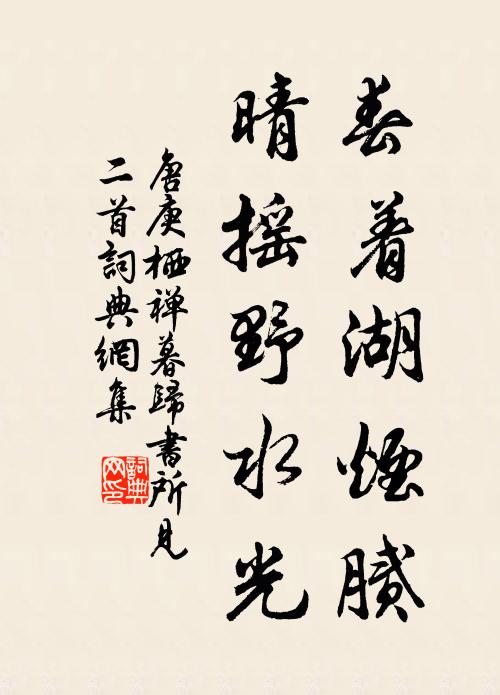 春着湖煙膩
晴摇野水光
唐庚栖禅暮歸書所見
二首詞典網集
詞典网印